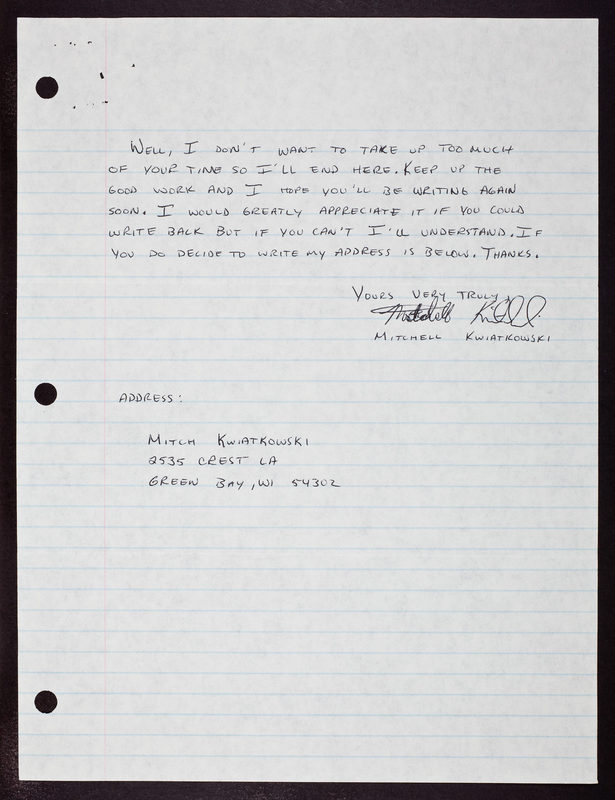 WELL, I DON'T WANT TO TAKE UP TOO MUCH
OF YOUR TIME SO I'LL END HERE. KEEP UP THE
GOOD WORK AND I HOPE YOU'LL BE WRITING AGAIN
SOON. I WOULD GREATLY APPRECIATE IT IF YOU COULD
WRITE BACK BUT IF YOU CAN'T I'LL UNDERSTAND. IF
YOU DO DECIDE TO WRITE MY ADDRESS IS BELOW. THANKS.
YOURS VERY TRULY,
Mitchell
MITCHELL KWIATKOWSKI
ADDRESS:
MITCH KWIATKOWSKI
2535 CREST LA
GREEN BAY, WI 54302